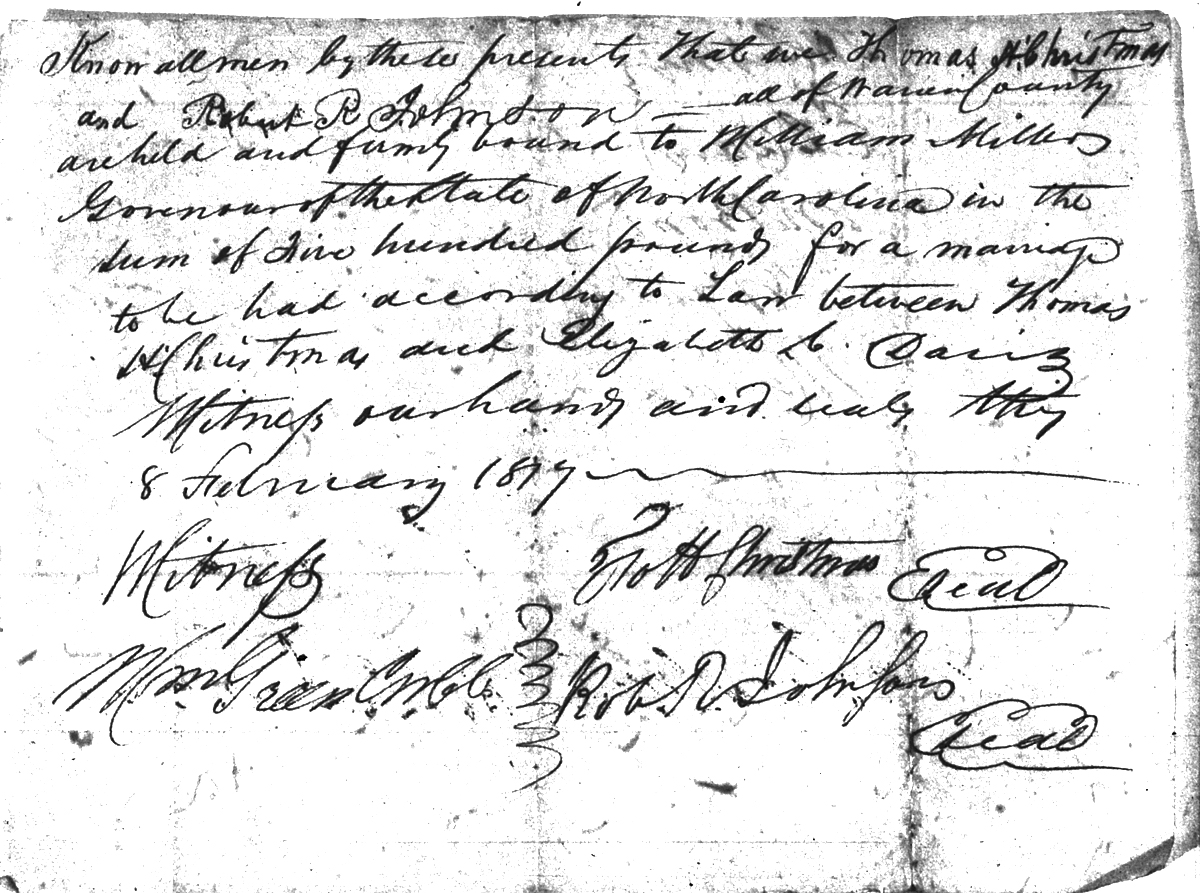 Know all men by these presents That we Thomas H. Christmas
and Robert R Johnson — all of Warren County
are held and firmly bound to William Miller
Govenour of the State of North Carolina in the
sum of Five hundred pounds for a marriage
to be had according to Law between Thomas
H Christmas and Elizabeth L. Davis
Witness our hands and seals this
8 February 1817
Witness Tho H Christmas Seal
Wm Green Rob. R. Johnson
Seal